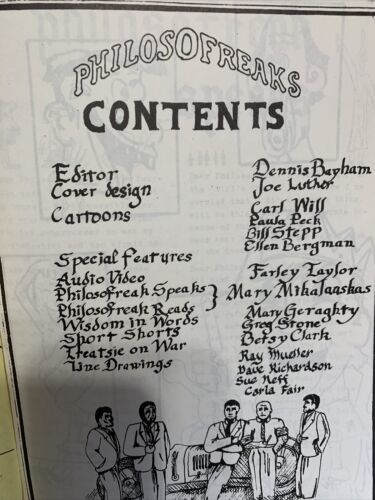 PHILOSOFREAKS
CONTENTS
Editor Dennis Bayham
Cover design Joe Luther
Cartoons Carl Will
Paula Peck
Bill Stepp
Ellen Bergman
Special Features Farley Taylor
Audio Video
Philosofreak Speaks } Mary Mikalauskas
Philosofreak Reads Mary Geraghty
Wisdom in Words Greg Stone
Sport Shorts Betsy Clark
Treatsie on War Ray Mueller
Line Drawings Dave Richardson
Sue Neff
Carla Fair